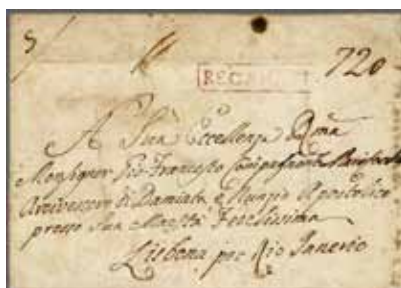 720
A Sua Eccellenza Rma
Monsignor
Arcivescovo di Damiata e Nunzio Apostolico
presso Sua Maestà Fedelissima
Lisbona per Rio Janerio